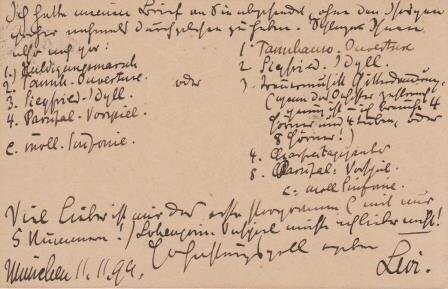 Ich hatte meinen Brief an Sie abgesendet, ohne den Ihrigen
vorher nochmals durchgelesen zu haben. Schlage Ihnen
also noch vor:
1.) Huldigungsmarsch
2. Tannh. Ouverture
3. Siegfried-Idyll.
4. Parsifal-Vorspiel.
c. moll. Sinfonie.
oder
1 Tannhauser-Ouverture
2 Siegfried-Idyll.
3. Trauermusik (Götterdämmerung,
(wenn das Orchester
genug ist; ich brauche 4
Hörner und 4 Tuben, oder
8 Hörner!)
4. Charfreitagszauber
5. Parsifal-Vorspiel.
c. moll Sinfonie.
Viel lieber ist mir das erste Programm (mit nur
5 Nummern!) Lohengrin Vorspiel möchte ich lieber nicht!
Hochachtungsvoll ergeben
München 11.11.94. Levi.